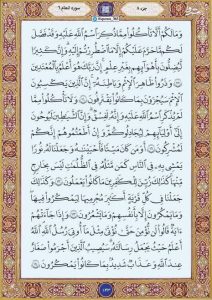 جزء ۸
سوره انعام ۶
وَمَا لَكُمْ أَلَّا تَأْكُلُوا۟ مِمَّا ذُكِرَ ٱسْمُ ٱللَّهِ عَلَيْهِ وَقَدْ فَصَّلَ
لَكُم مَّا حَرَّمَ عَلَيْكُمْ إِلَّا مَا ٱضْطُرِرْتُمْ إِلَيْهِ وَإِنَّ كَثِيرًا
لَّيُضِلُّونَ بِأَهْوَآئِهِم بِغَيْرِ عِلْمٍ إِنَّ رَبَّكَ هُوَ أَعْلَمُ بِٱلْمُعْتَدِينَ
۝ وَذَرُوا۟ ظَٰهِرَ ٱلْإِثْمِ وَبَاطِنَهُۥٓ إِنَّ ٱلَّذِينَ يَكْسِبُونَ
ٱلْإِثْمَ سَيُجْزَوْنَ بِمَا كَانُوا۟ يَقْتَرِفُونَ ۝ وَلَا تَأْكُلُوا۟ مِمَّا
لَمْ يُذْكَرِ ٱسْمُ ٱللَّهِ عَلَيْهِ وَإِنَّهُۥ لَفِسْقٌ وَإِنَّ ٱلشَّيَٰطِينَ لَيُوحُونَ
إِلَىٰٓ أَوْلِيَآئِهِمْ لِيُجَٰدِلُوكُمْ وَإِنْ أَطَعْتُمُوهُمْ إِنَّكُمْ
لَمُشْرِكُونَ ۝ أَوَمَن كَانَ مَيْتًا فَأَحْيَيْنَٰهُ وَجَعَلْنَا لَهُۥ نُورًا
يَمْشِى بِهِۦ فِى ٱلنَّاسِ كَمَن مَّثَلُهُۥ فِى ٱلظُّلُمَٰتِ لَيْسَ بِخَارِجٍ
مِّنْهَا كَذَٰلِكَ زُيِّنَ لِلْكَٰفِرِينَ مَا كَانُوا۟ يَعْمَلُونَ ۝ وَكَذَٰلِكَ
جَعَلْنَا فِى كُلِّ قَرْيَةٍ أَكَٰبِرَ مُجْرِمِيهَا لِيَمْكُرُوا۟ فِيهَا
وَمَا يَمْكُرُونَ إِلَّا بِأَنفُسِهِمْ وَمَا يَشْعُرُونَ ۝ وَإِذَا جَآءَتْهُمْ
ءَايَةٌ قَالُوا۟ لَن نُّؤْمِنَ حَتَّىٰ نُؤْتَىٰ مِثْلَ مَآ أُوتِىَ رُسُلُ ٱللَّهِ ٱللَّهُ
أَعْلَمُ حَيْثُ يَجْعَلُ رِسَالَتَهُۥ سَيُصِيبُ ٱلَّذِينَ أَجْرَمُوا۟ صَغَارٌ
عِندَ ٱللَّهِ وَعَذَابٌ شَدِيدٌۢ بِمَا كَانُوا۟ يَمْكُرُونَ ۝
۱۴۳